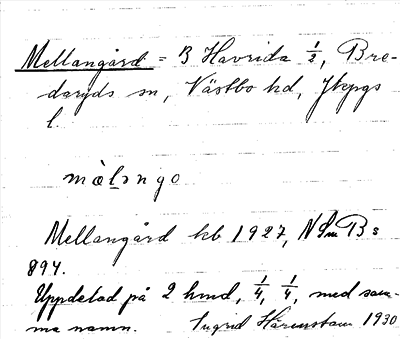 Mellangård = B Havrida ½, Bre-
daryds sn, Västbo hd, Jkpgs
l.
mὰləngo
Mellangård kb 1927, NSmB s
894.
Uppdelad på 2 hmd, ¼, ¼, med sam-
ma namn. Ingrid Härenstam 1930